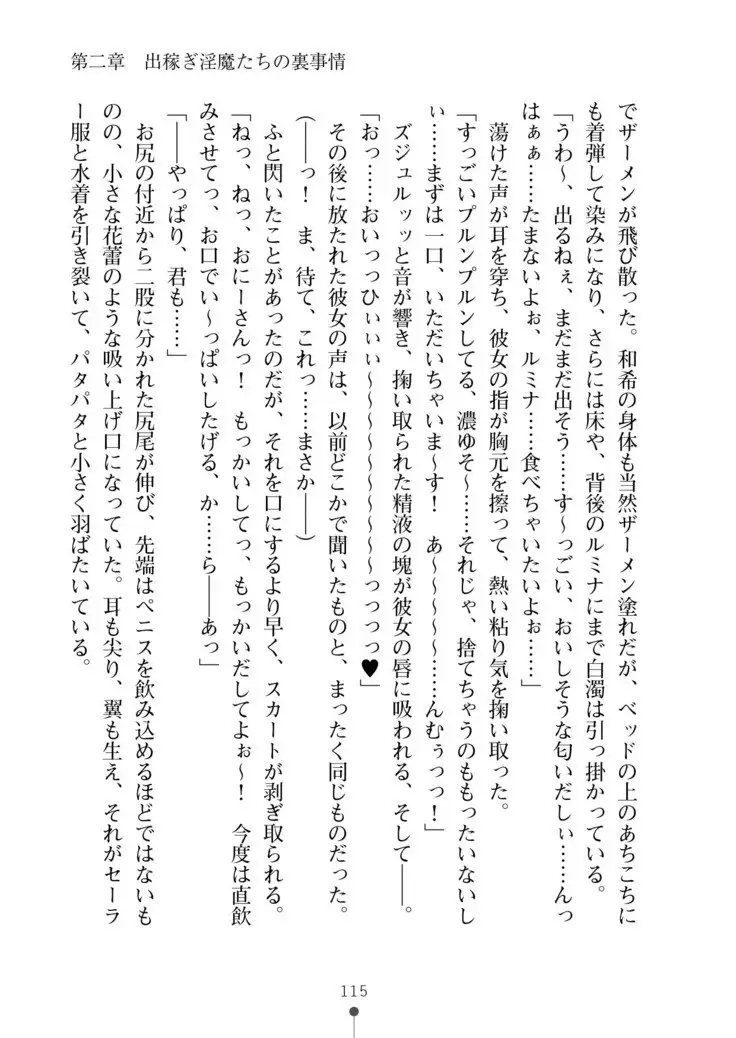 第二章　出稼ぎ淫魔たちの裏事情
でザーメンが飛び散った。和希の身体も当然ザーメン塗れだが、ベッドの上のあちこちに
も着弾して染みになり、さらには床や、背後のルミナにまで白濁は引っ掛かっている。
「うわ～、出るねぇ、まだまだ出そう……す～っごい、おいしそうな匂いだしぃ……んっ
はぁぁ……たまないよぉ、ルミナ……食べちゃいたいよぉ……」
蕩けた声が耳を穿ち、彼女の指が胸元を擦って、熱い粘り気を掬い取った。
「すっごいプルンプルンしてる、濃ゆそ～……それじゃ、捨てちゃうのももったいないし
ぃ……まずは一口、いただいちゃいま～す！　あ～～～～～……んむぅっっ！」
ズジュルッッと音が響き、掬い取られた精液の塊が彼女の唇に吸われる、そして――。
「おっ……おいっっひぃぃぃ～～～～～～～～～っっっっ♥」
その後に放たれた彼女の声は、以前どこかで聞いたものと、まったく同じものだった。
（――っ！　ま、待て、これっ……まさか――）
ふと閃いたことがあったのだが、それを口にするより早く、スカートが剥ぎ取られる。
「ねっ、ねっ、おにーさんっ！　もっかいしてっ、もっかいだしてよぉ～！　今度は直飲
みさせてっ、お口でい～っぱいしたげる、か……ら――あっ」
「――やっぱり、君も……」
お尻の付近から二股に分かれた尻尾が伸び、先端はペニスを飲み込めるほどではないも
のの、小さな花蕾のような吸い上げ口になっていた。耳も尖り、翼も生え、それがセーラ
ー服と水着を引き裂いて、パタパタと小さく羽ばたいている。
115